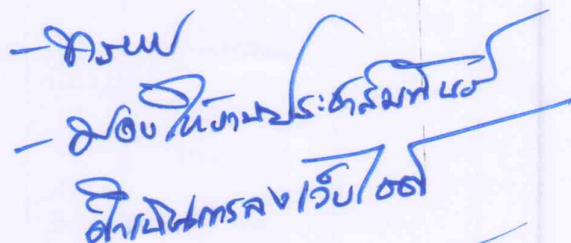 - ทราบ
- มอบให้งานประชาสัมพันธ์
ดำเนินการลงเว็บไซต์